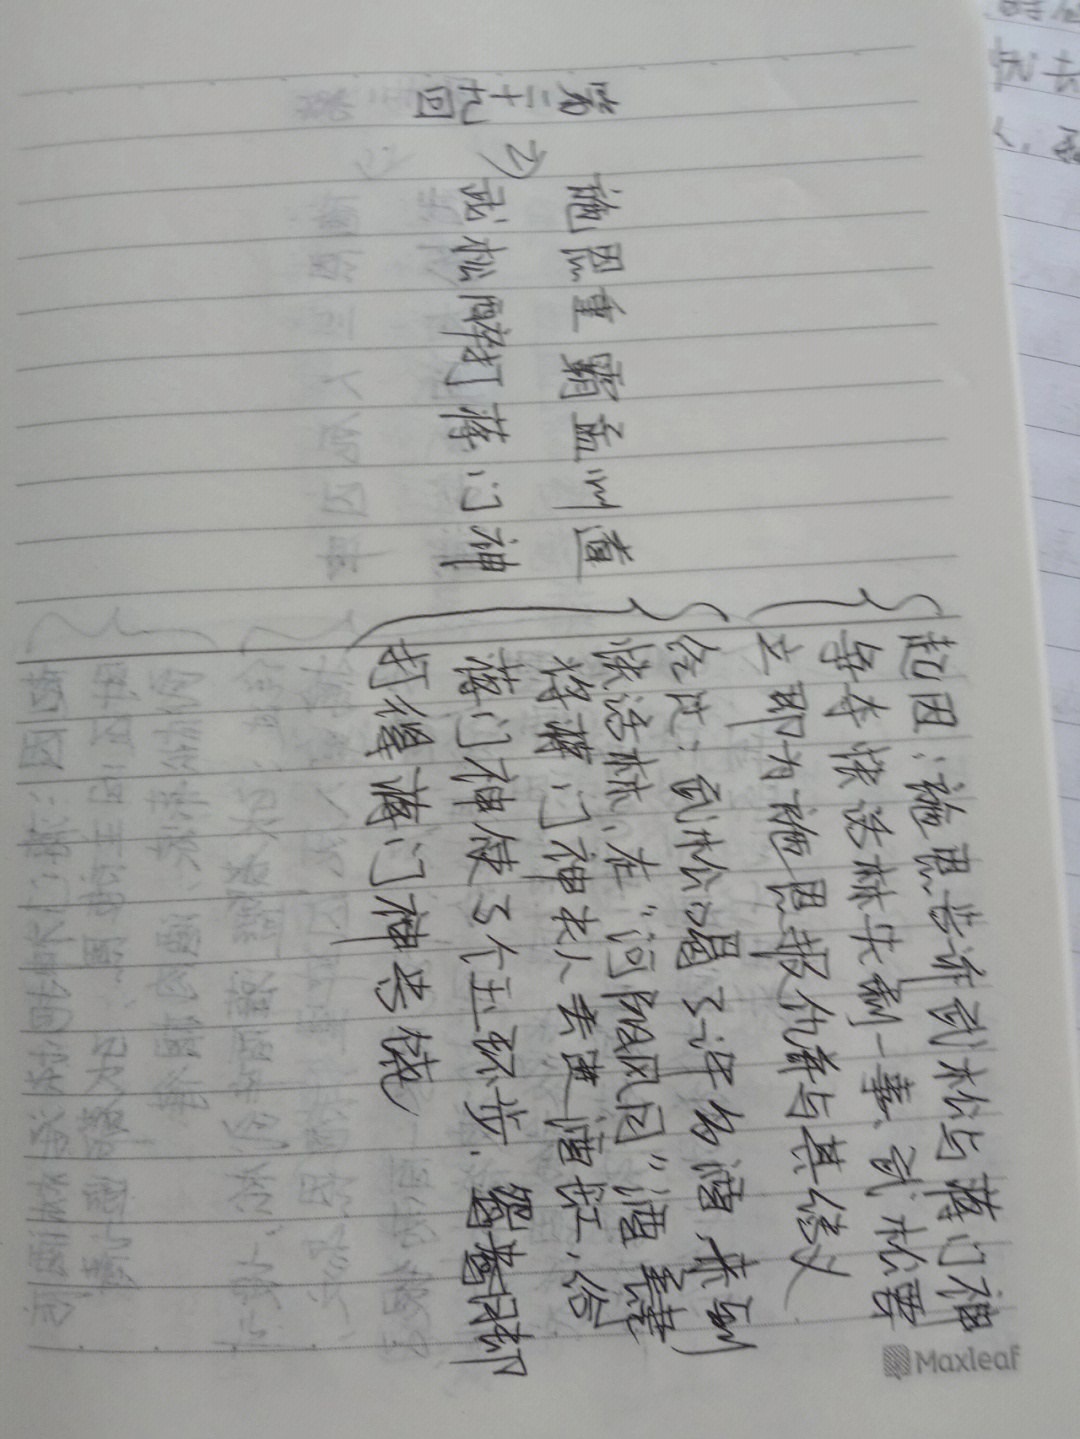 第二十
九回
施恩重霸孟州道
武松醉打蒋门神
起因:施恩告诉武松与蒋门神
争夺快活林失利一事、武松要
立即为施恩报仇并与其结义
经过:武松喝了许多酒,来到
快活林、在"阳风月"酒
将蒋门神夫人丢进酒缸、给
蒋门神使了个玉环步、鸳鸯脚
打得蒋门神求饶
Maxleaf